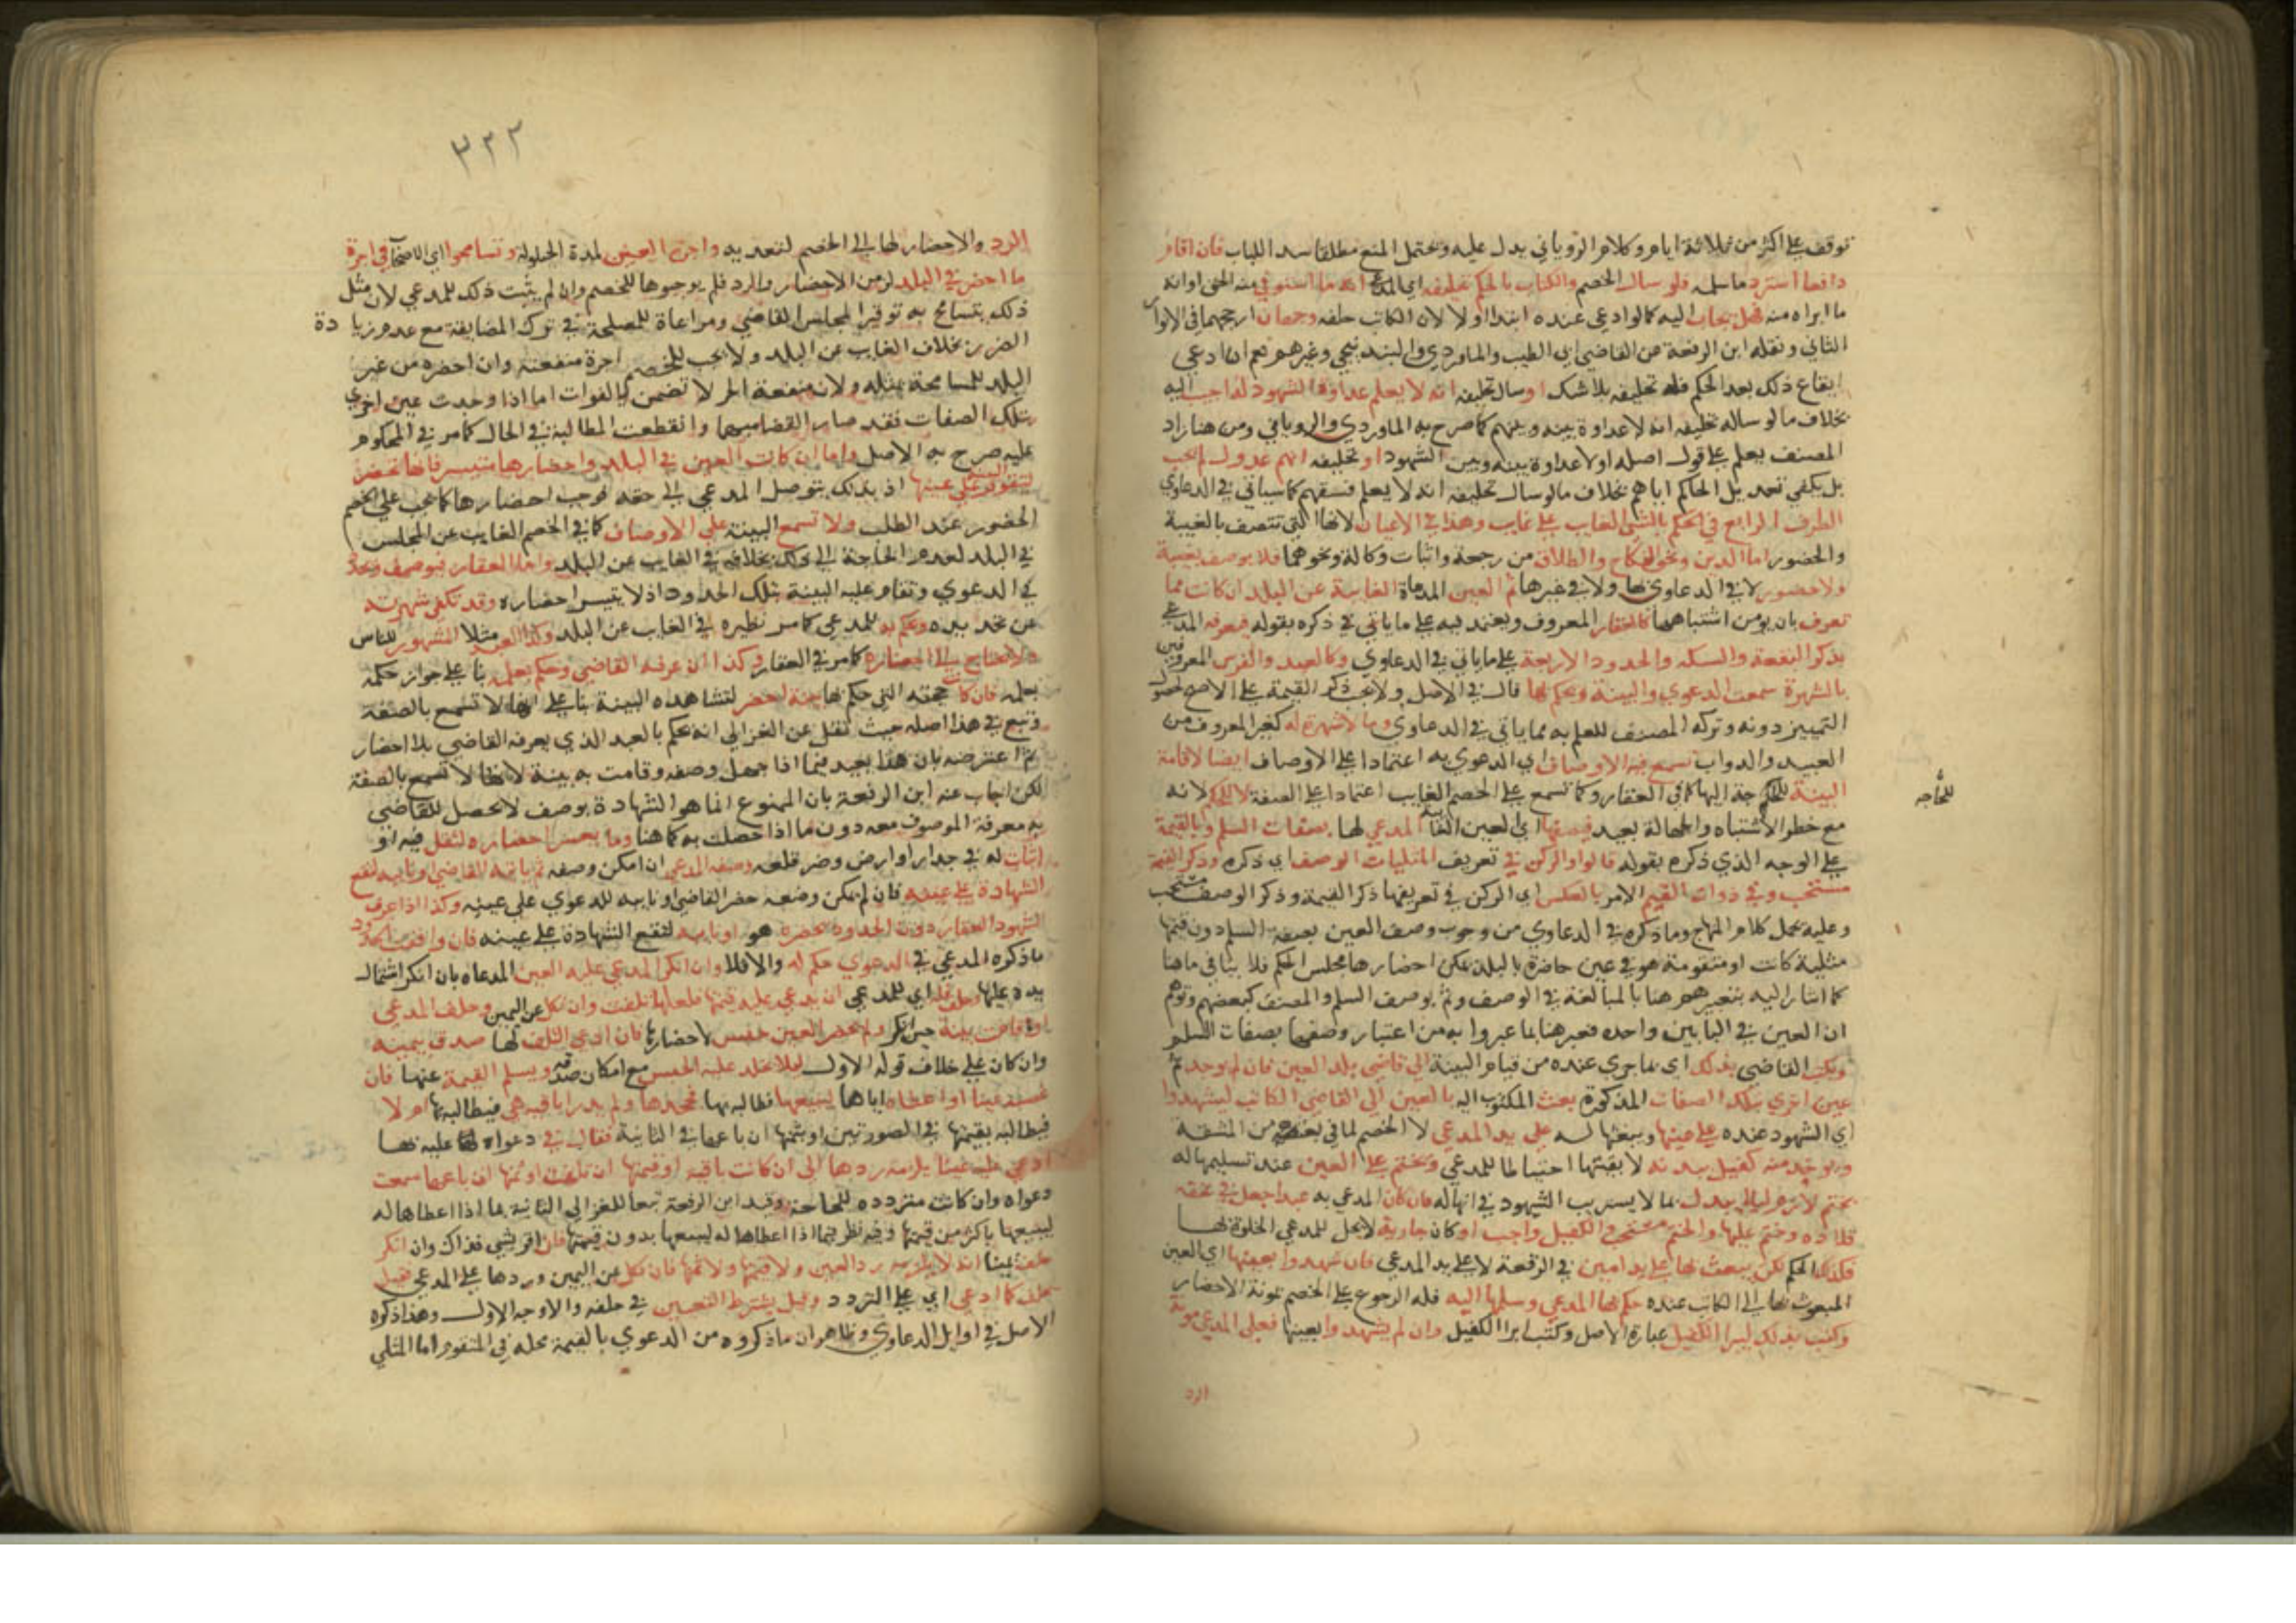 توقف على اكثر من ثلاثة ايام وكلام الروياني يدل عليه ويحتمل المنع مطلقا سدا للباب فان اقام
دافعا استرد ماسلمه فلو سال الخصم والكتاب بالحكم تحليفه اي المدعي انه ما استوفي منه الحق او انه
ما ابراه منه فهل يجاب اليه كما لو ادعي عنده ابتدا او لا لان الكاتب حلفه وجهان ارجحهما في الانوار
الثاني ونقله ابن الرفعة عن القاضي ابي الطيب والماوردي والبندنيجي وغيرهم نعم ان ادعي
ايقاع ذلك بعد الحكم فله تحليفه بلا شك او سال تحليفه انه لا يعلم عداوة الشهود له اجيب اليه
بخلاف ما لو ساله تحليفه انه لا عداوة بينه وبينهم كما صرح به الماوردي والروياني ومن هنا زاد
المصنف يعلم على قول اصله او لا عداوة بينه وبين الشهود او تحليفه انهم عدول لم يجب
بل يكفي تعديل الحاكم اياهم بخلاف ما لو سال تحليفه انه لا يعلم فسقهم كما سياتي في الدعاوي
الطرف الرابع في الحكم بالشي الغايب على غايب وهذا في الاعيان لانها التي تتصف بالغيبة
والحضور اما الدين ونحو النكاح والطلاق من رجعة واثبات وكالة ونحوهما فلا يوصف بغيبة
ولا حضور لا في الدعاوي بها ولا في غيرها ثم العين المدعاة الغايبة عن البلد ان كانت مما
تعرف بان يومن اشتباهها كالعقار المعروف ويعتمد فيه على ما ياتي في ذكره بقوله فيعرفه المدعي
بذكر البقعة والسكه والحدود الاربعة على ما ياتي في الدعاوي وكالعبد والفرس المعروفين
بالشهرة سمعت الدعوي والبينة وحكم بها قال في الاصل ولا يجب ذكر القيمة على الاصح لحصول
التمييز دونه وتركه المصنف للعلم به مما ياتي في الدعاوي وما لا شهرة له كغير المعروف من
العبيد والدواب تسمع فيه الاوصاف اي الدعوي به اعتمادا على الاوصاف ايضا لاقامة
البينة للحاجة اليها كما في العقار وكما تسمع على الخصم الغايب اعتمادا على الصفة لا للحكم لانه
للحاجه
مع خطر الاشتباه والجهالة بعيد فيصفها اي العين الغايبة المدعي لها بصفات السلم وبالقيمة
على الوجه الذي ذكره بقوله قالوا والركن في تعريف المثليات الوصف اي ذكره وذكر القيمة
مستحب وفي ذوات القيم الامر بالعكس اي الركن في تعريفها ذكر القيمة وذكر الوصف مستحب
وعليه يحمل كلام المنهاج وما ذكره في الدعاوي من وجوب وصف العين بصفة السلم دون قيمتها
مثلية كانت او متقومة هو في عين حاضرة بالبلد يمكن احضارها مجلس الحكم فلا ينافي ما هنا
كما اشار اليه بتعبيرهم هنا بالمبالغة في الوصف وثم بوصف السلم والمصنف كبعضهم توهم
ان العين في البابين واحده فعبر هنا بما عبروا به من اعتبار وصفها بصفات السلم
ويكتب القاضي بذلك اي بما جري عنده من قيام البينة الي قاضي بلد العين فان لم يوجد ثم
عين اخري بتلك الصفات المذكورة بعث المكتوب اليه بالعين الي القاضي الكاتب ليشهدوا
اي الشهود عنده على عينها ويبعثها له على يد المدعي لا الخصم لما في بعثه من المشقة
ويوخذ منه كفيل ببدنه لا بقيمتها احتياطا للمدعي ويختم على العين عند تسليمها له
بختم لازم ليلا يبدل بما لا يستريب الشهود في انها له فان كان المدعي به عبدا جعل في عنقه
قلادة وختم عليها والختم مستحب والكفيل واجب او كان جارية لا يحل للمدعي الخلوة بها
فكذلك الحكم لكن يبعث بها على يد امين في الرفقة لا على يد المدعي فان شهدوا بعينها اي العين
المبعوث بها الي الكاتب عنده حكم بها للمدعي وسلمها اليه فله الرجوع على الخصم بمونة الاحضار
وكتب بذلك ليبرا الكفيل عبارة الاصل وكتب ابرا الكفيل وان لم يشهدوا بعينها فعلى المدعي مونة
الرد
٣٢٢
الرد والاحضار لها الي الخصم لتعديه واجرة العين لمدة الحيلولة وتسامحوا اي الاصحاب في اجرة
ما احضر في البلد لزمن الاحضار والرد فلم يوجبوها للخصم وان لم يثبت ذلك للمدعي لان مثل
ذلك يتسامح به توقيرا لمجلس القاضي ومراعاة للمصلحة في ترك المضايقة مع عدم زيادة
الضرر بخلاف الغايب عن البلد ولا يجب للخصم اجرة منفعته وان احضره من غير
البلد للمسامحة بمثله ولان منفعة الحر لا تضمن بالفوات اما اذا وجدت عين اخري
بتلك الصفات فقد صار القضا مبهما وانقطعت المطالبة في الحال كما مر في المحكوم
عليه صرح به الاصل واما ان كانت العين في البلد واحضارها متيسر فانها تحضر
لتقوم البينة على عينها اذ بذلك يتوصل المدعي الي حقه فوجب احضارها كما يجب على الخصم
الحضور عند الطلب ولا تسمع البينة على الاوصاف كما في الخصم الغايب عن المجلس
في البلد لعدم الحاجة الي ذلك بخلافه في الغايب عن البلد واما العقار فيوصف ويحد
في الدعوي وتقام عليه البينة بتلك الحدود اذ لا يتيسر احضاره وقد تكفي شهرته
عن تحديده وحكم به للمدعي كما مر نظيره في الغايب عن البلد وكذا العبد مثلا المشهور للناس
لا يحتاج الي احضاره كما مر في العقار وكذا ان عرفه القاضي وحكم بعلمه بنا على جواز حكمه
بعلمه فان كانت حجته التي حكم بها بينة احضر لتشاهده البينة بنا على انها لا تسمع بالصفة
وتبع في هذا اصله حيث نقل عن الغزالي انه يحكم بالعبد الذي يعرفه القاضي بلا احضار
ثم اعترضه بان هذا بعيد فيما اذا جهل وصفه وقامت به بينة لانها لا تسمع بالصفة
لكن اجاب عنه ابن الرفعة بان الممنوع انما هو الشهادة بوصف لا يحصل للقاضي
به معرفة الموصوف معه دون ما اذا حصلت به كما هنا وما يعسر احضاره لثقل فيه او
اثبات له في جدار او ارض وضر قلعه وصفه المدعي ان امكن وصفه ثم ياتيه القاضي او نايبه لتقع
الشهادة على عينه فان لم يمكن وصفه حضر القاضي او نايبه للدعوي على عينه وكذا اذا عرف
الشهود العقار دون الحدود يحضره هو او نايبه لتقع الشهادة على عينه فان وافقت الحدود
ما ذكره المدعي في الدعوي حكم له والا فلا وان انكر المدعي عليه العين المدعاه بان انكر اشتمال
يده عليها وحلف فله اي للمدعي ان يدعي عليه قيمتها فلعلها تلفت وان نكل عن اليمين وحلف المدعي
او اقامت بينة حين انكر ولم يحضر العين حبس لاحضارها فان ادعي التلف لها صدق بيمينه
وان كان على خلاف قوله الاول ليلا يخلد عليه الحبس مع امكان صدقه ويسلم القيمة عنها فان
غصبه عينا او اعطاه اياها ليبيعها فطالبه بها فجحدها ولم يدر اباقية هي فيطالبه بها ام لا
فيطالبه بقيمتها في الصورتين او بثمنها ان باعها في الثانية فقال في دعواه لها عليه بها
ادعي عليه عينا يلزمه ردها الي ان كانت باقية او قيمتها ان تلفت او ثمنها ان باعها سمعت
دعواه وان كانت مترددة للحاجة وقيد ابن الرفعة تبعا للغزالي الثانية بما اذا اعطاها له
ليبيعها باكثر من قيمتها وفيه نظر فيما اذا اعطاها له ليبيعها بدون قيمتها فان اقر بشي فذاك وان انكر
حلف يمينا انه لا يلزمه رد العين ولا قيمتها ولا ثمنها فان نكل عن اليمين وردها على المدعي فقيل
يحلف كما ادعي اي على التردد وقيل يشترط التعيين في حلفه والاوجه الاول وهذا ذكره
الاصل في اوايل الدعاوي وظاهر ان ما ذكروه من الدعوي بالقيمة محله في المتقوم اما المثلي